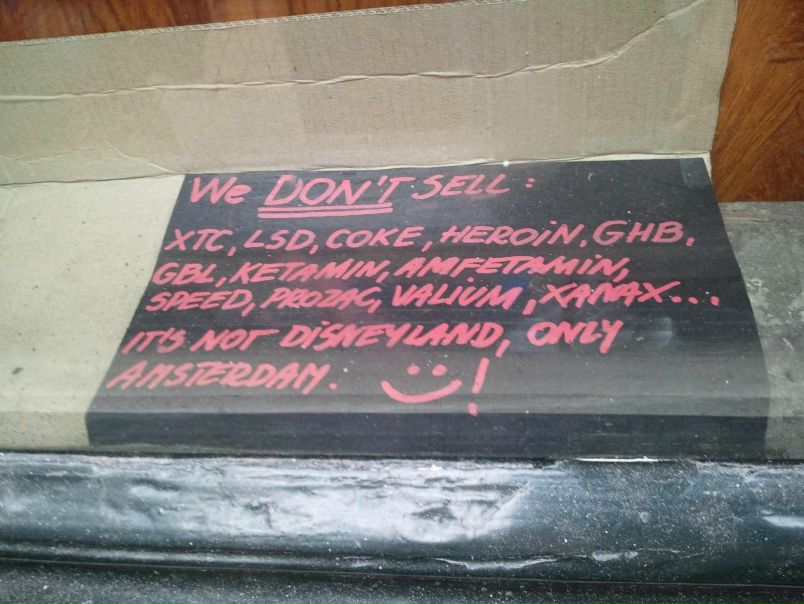 We DON'T SELL:
XTC, LSD, COKE, HEROiN, GHB,
GBL, KETAMIN, AMFETAMiN,
SPEED, PROZAC, VALiUM, XANAX...
iT'S NOT DiSNEYLAND, ONLY
AMSTERDAM. !